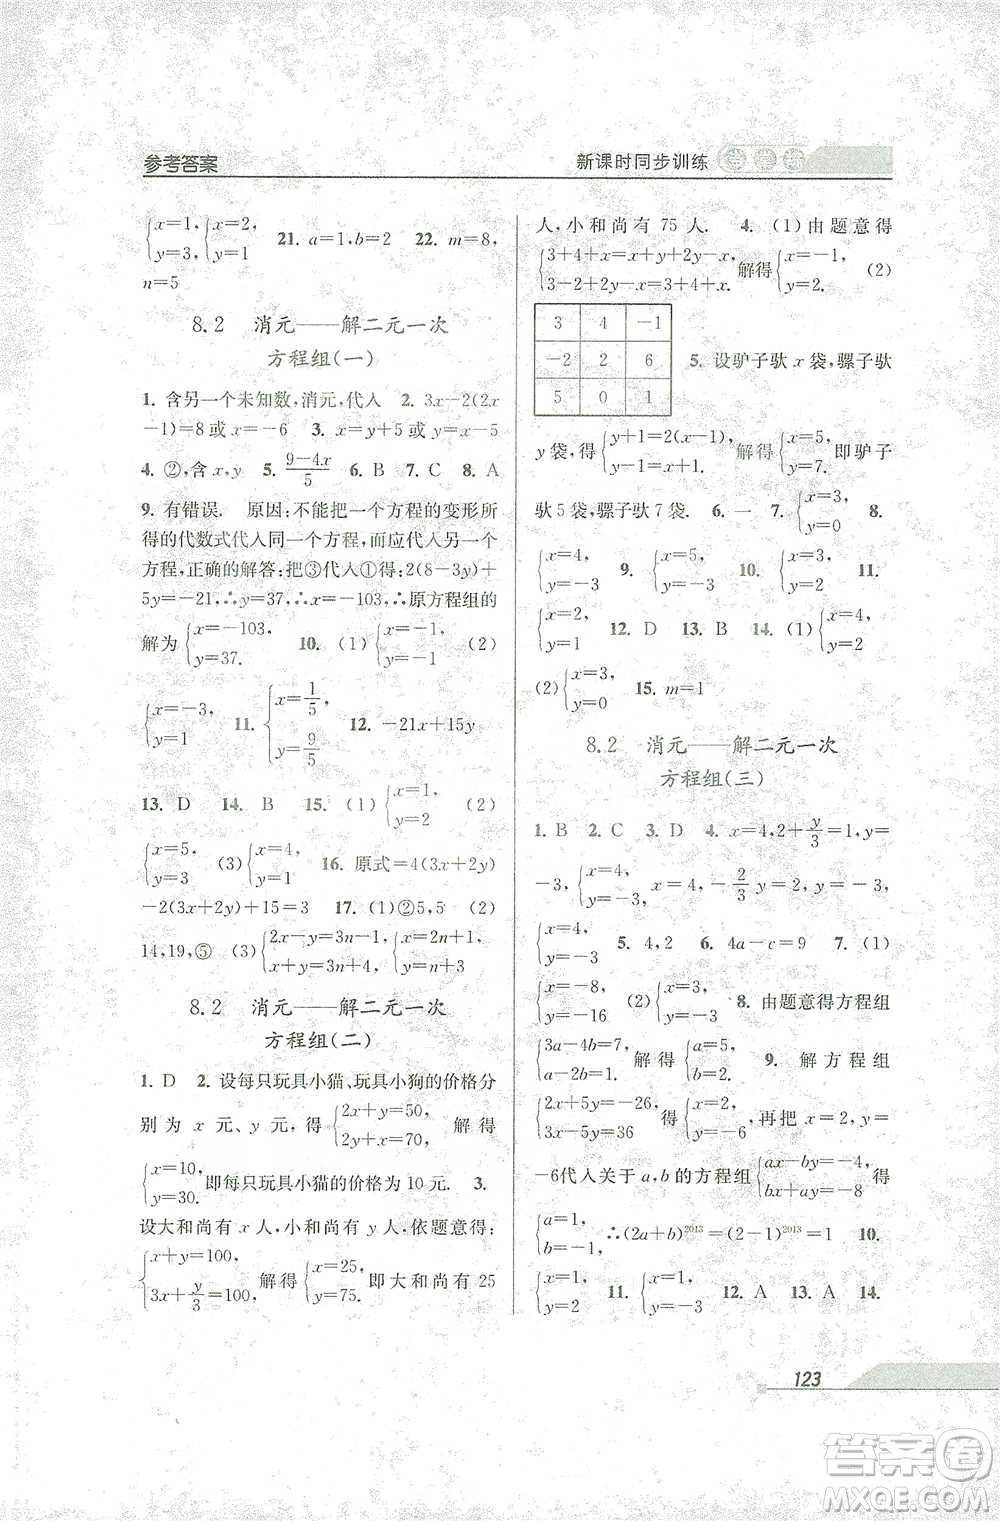 参考答案
新课时同步训练
{x=1, y=3, {x=2, y=1 21. a=1,b=2 22. m=8,
n=5
8.2 消元——解二元一次
方程组(一)
1. 含另一个未知数,消元,代人 2. 3x-2(2x
-1)=8或x=-6 3. x=y+5或y=x-5
4. ②,含x,y 5. (9-4x)/5 6. B 7. C 8. A
9. 有错误. 原因:不能把一个方程的变形所
得的代数式代人同一个方程,而应代人另一个
方程,正确的解答:把③代人①得:2(8-3y)+
5y=-21,∴y=37,∴x=-103,∴原方程组的
解为{x=-103, y=37. 10. (1){x=-1, y=-1 (2)
{x=-3, y=1 11. {x=1/5, y=9/5 12. -21x+15y
13. D 14. B 15. (1){x=1, y=2 (2)
{x=5, y=5 (3){x=4, y=1 16. 原式=4(3x+2y)
-2(3x+2y)+15=3 17. (1)②5,5 (2)
14,19,⑤ (3){2x-y=3n-1, x+y=3n+1, {x=2n+1, y=n
8.2 消元——解二元一次
方程组(二)
1. D 2. 设每只玩具小猫、玩具小狗的价格分
别为 x 元、y 元, 得{2x+y=50, 2y+x=70, 解得
{x=10, y=30. 即每只玩具小猫的价格为 10 元. 3.
设大和尚有 x 人,小和尚有 y 人,依题意得:
{x+y=100, 3x+y/3=100, 解得{x=25, y=75. 即大和尚有 25
人,小和尚有 75 人. 4. (1)由题意得
{3+4+x=x+y+2y-x, 3-2+2y-x=3+4+x, 解得{x=-1, y=2. (2)
3 4 -1
-2 2 6
5 0 1
5. 设驴子驮 x 袋,骡子驮
y袋,得{y+1=2(x-1), y-1=x, 解得{x=5, y=7. 即驴子
驮5袋,骡子驮7袋. 6. 一 7. {x=3, y=0 8.
{x=5, y=-3 9. {x=6, y=-3 10. {x=3, y=-3 11.
{x=2, y=1 12. D 13. B 14. (1){x=4, y=2
(2){x=3, y=0 15. m=1
8.2 消元——解二元一次
方程组(三)
1. B 2. C 3. D 4. x=4,2+y/3=1,y=
-3,{x=4, y=-3 x=4,-2/3 y=2,y=-3,
{x=4, y=-3 5. 4,2 6. 4a-c=9 7. (1)
{x=-8, y=-16 (2){x=-4, y=-3 8. 由题意得方程组
{3a-4b=7, a-2b=1 解得{a=5, b=2 9. 解方程组
{2x+5y=-26, 2x-5y=36 得{x=2, y=-6, 再把 x=2,y=
-6代人关于a,b的方程组{ax-by=-4, bx+ay=-8 得
{a=1, b=-1, ∴(2a+b)²⁰¹³=(2-1)²⁰¹³=1 10.
{x=1, y=2 11. {x=4, y=-3 12. A 13. A 14.
123
答案圈
MXQE.COM